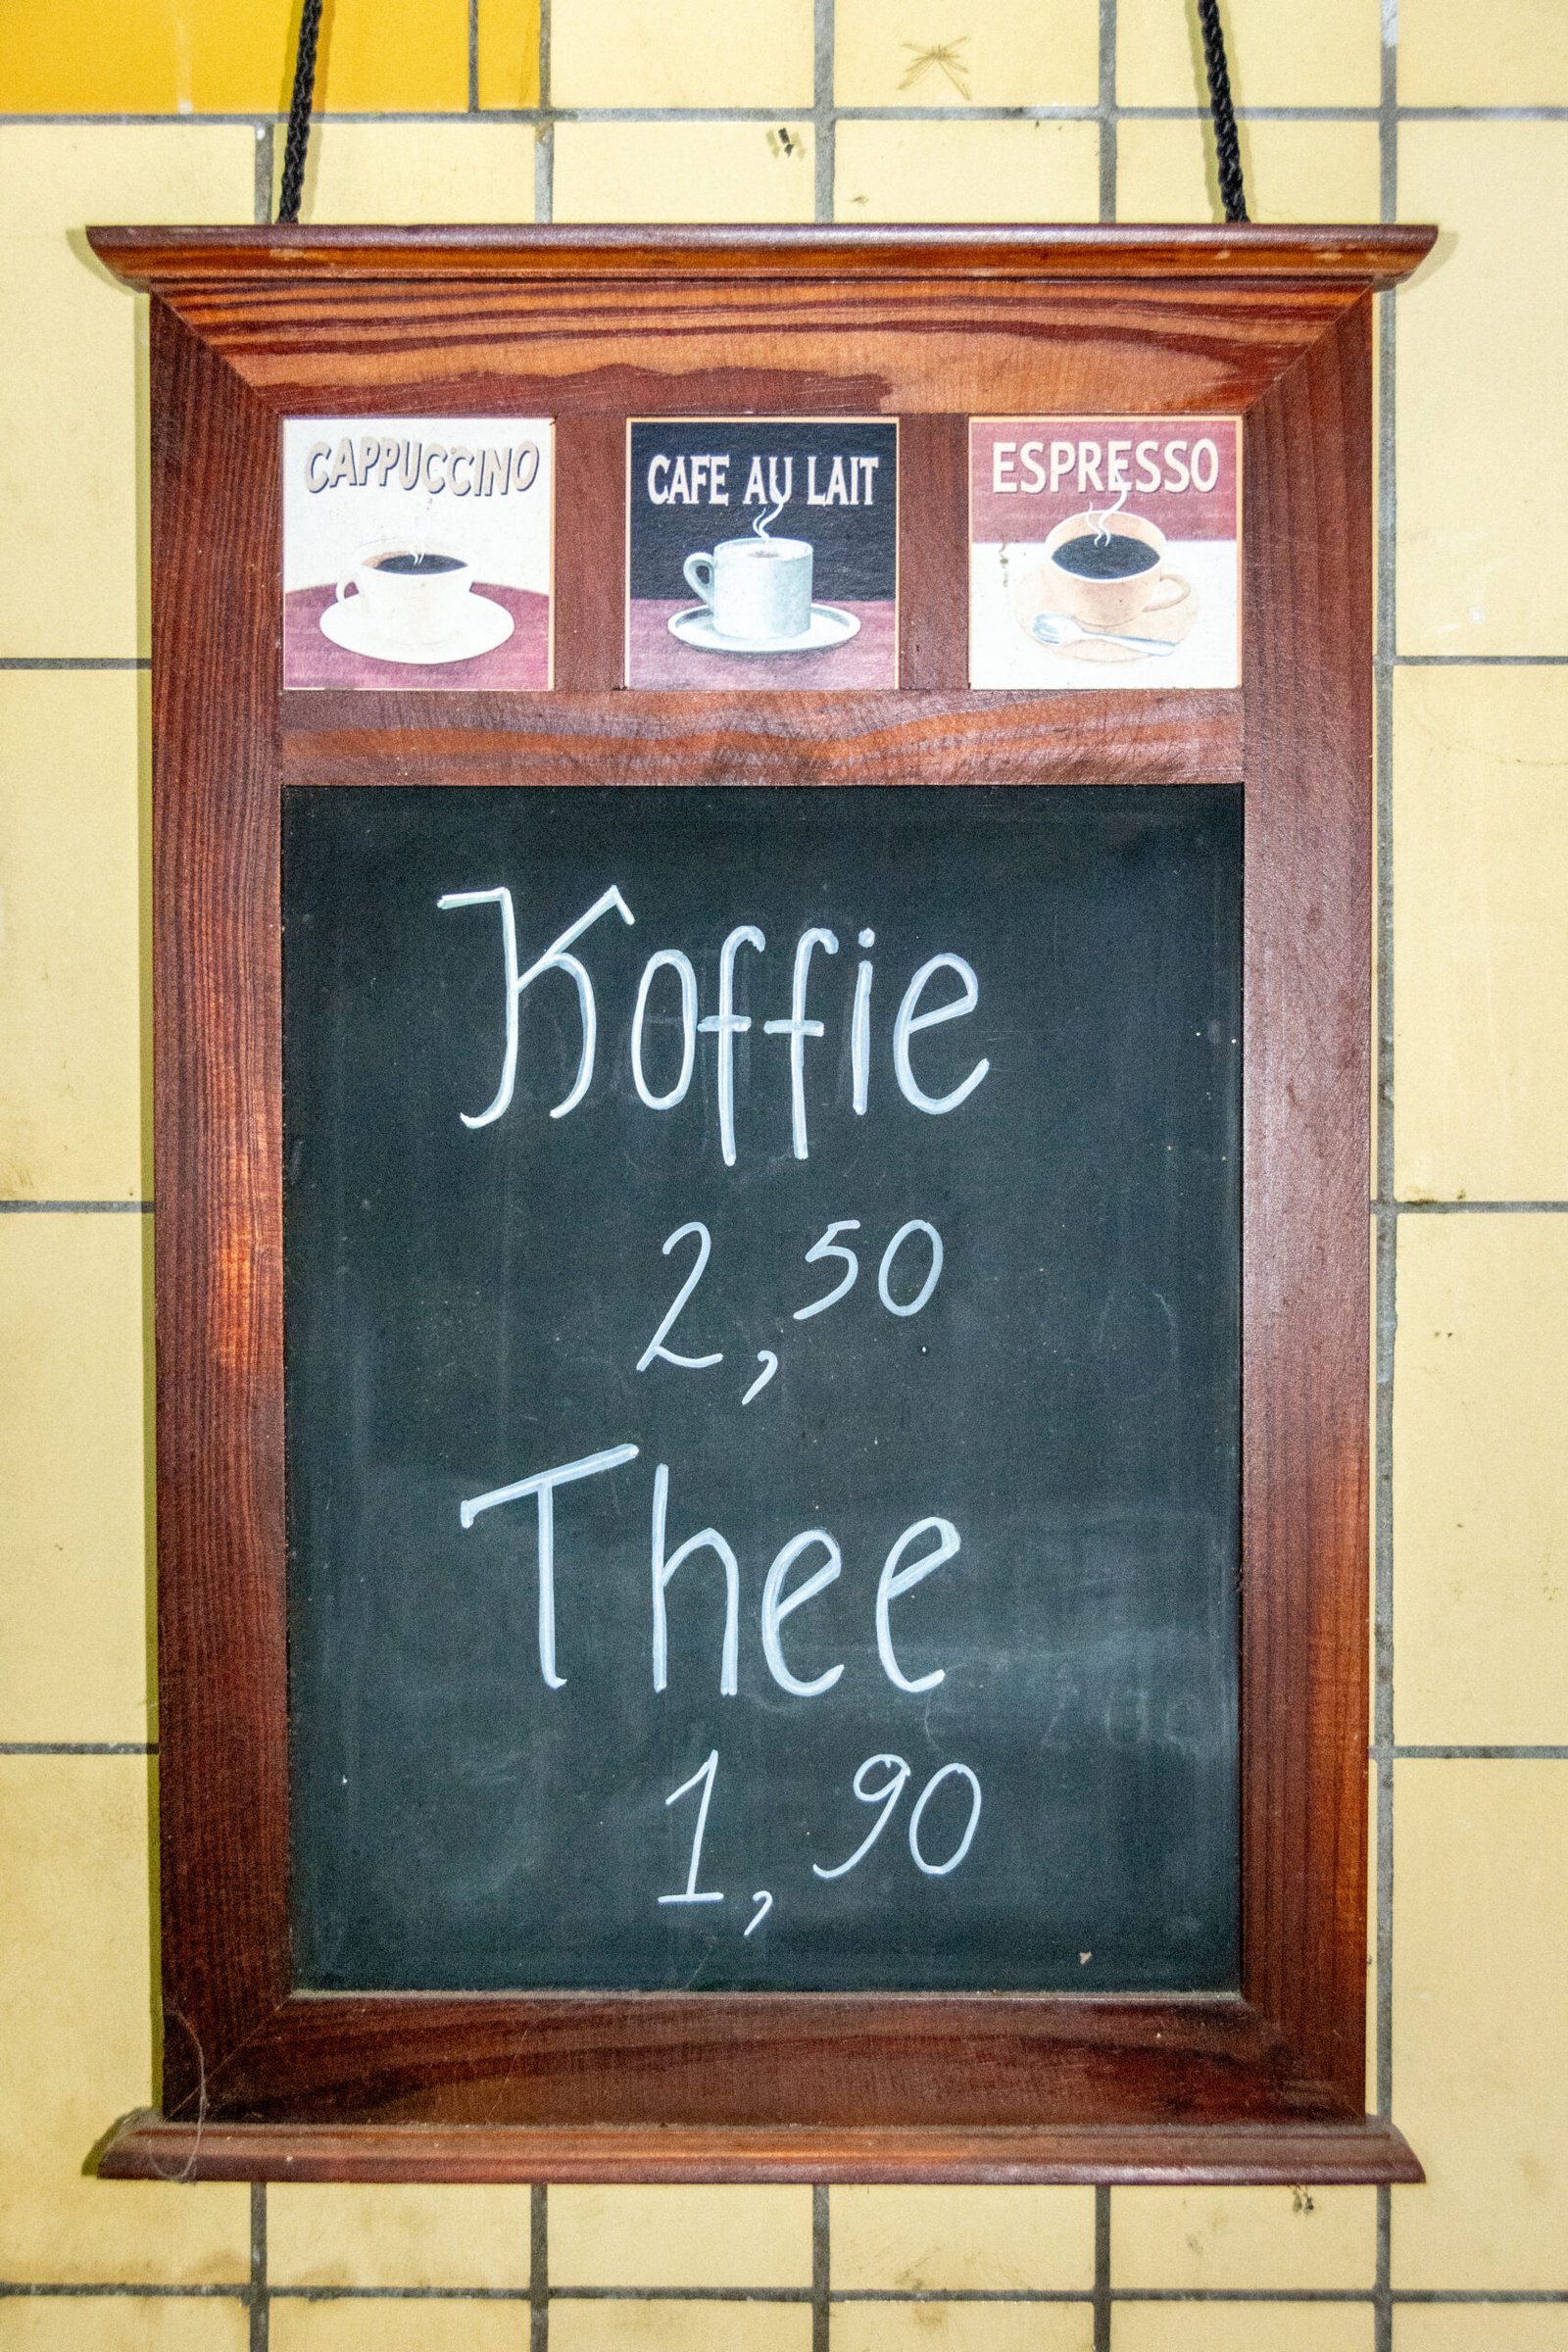 CAPPUCCINO
CAFE AU LAIT
ESPRESSO
Koffie
2,50
Thee
1,90